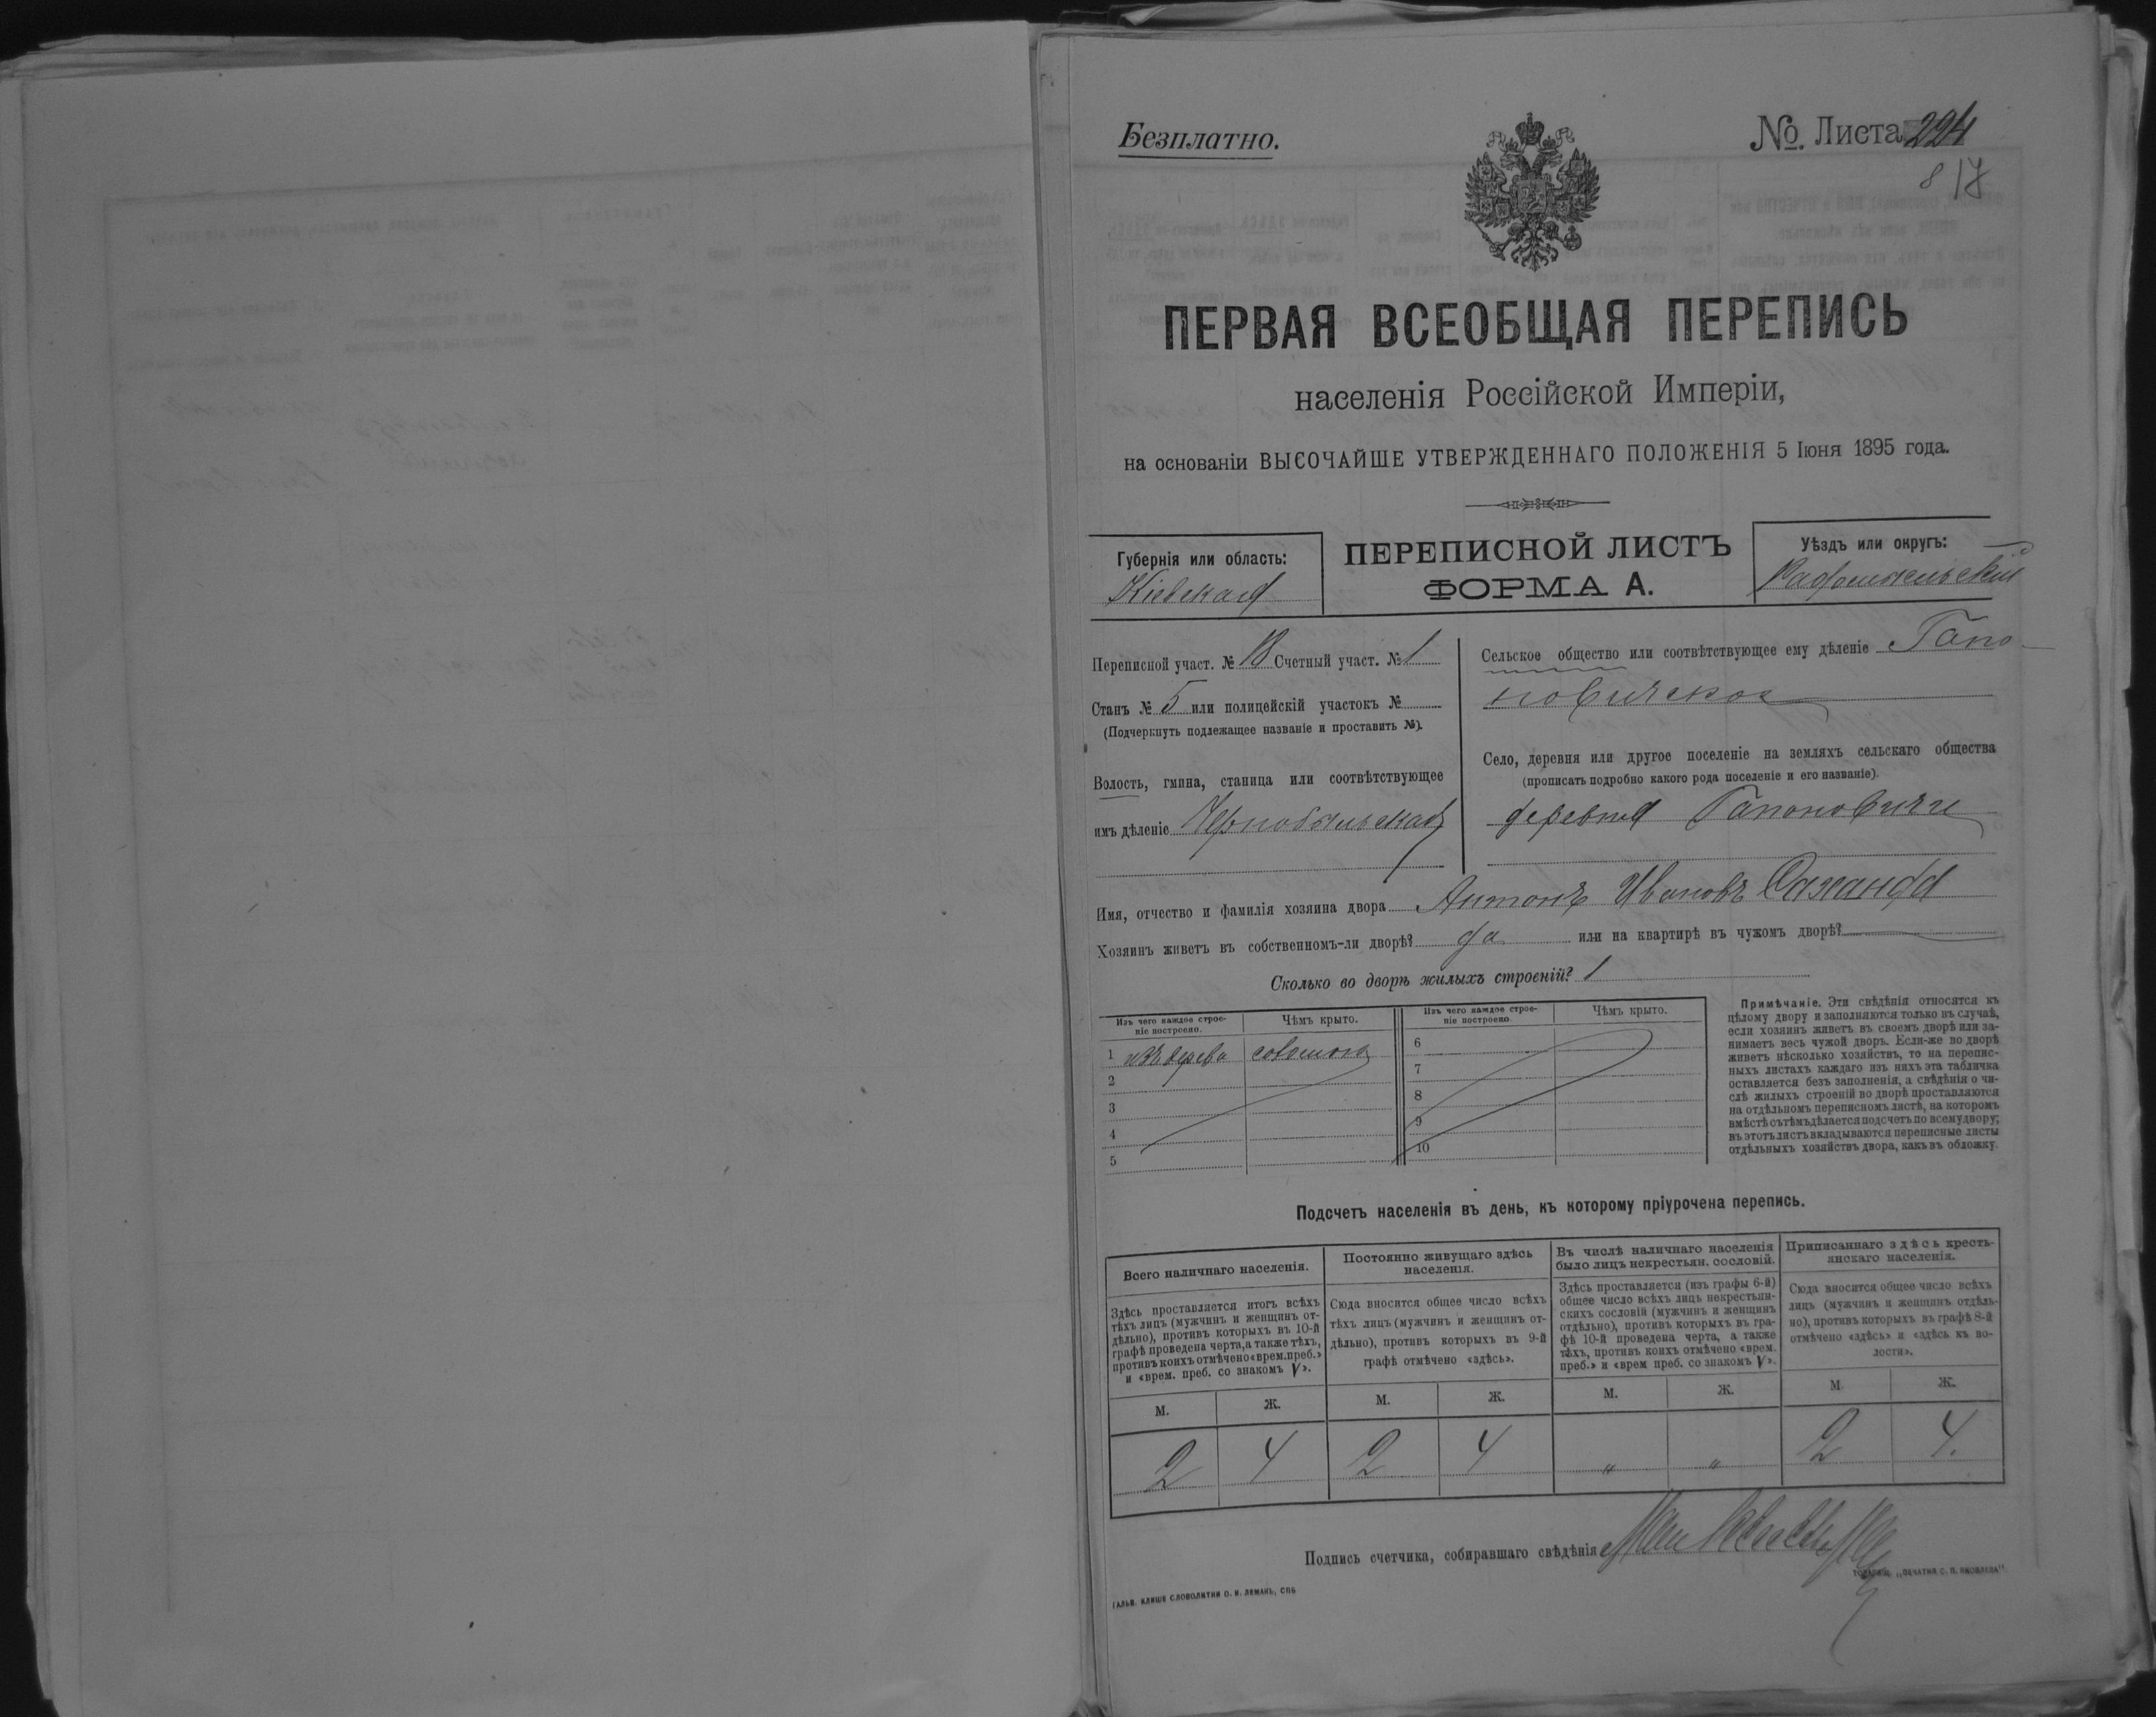 Безплатно.
№. Листа 224
8 17
ПЕРВАЯ ВСЕОБЩАЯ ПЕРЕПИСЬ
населенія Россійской Имперіи,
на основаніи ВЫСОЧАЙШЕ УТВЕРЖДЕННАГО ПОЛОЖЕНІЯ 5 Іюня 1895 года.
Губернія или область:
Кіевская
ПЕРЕПИСНОЙ ЛИСТЪ
ФОРМА А.
Уѣздъ или округъ:
Радомысльскій
Переписной участ. № 18 Счетный участ. № 1
Станъ № 5 или полицейскій участокъ №
(Подчеркнуть подлежащее названіе и проставить №).
Волость, гмина, станица или соотвѣтствующее
имъ дѣленіе Чернобыльская
Сельское общество или соотвѣтствующее ему дѣленіе Гапо-
новичское
Село, деревня или другое поселеніе на земляхъ сельскаго общества
(прописать подробно какого рода поселеніе и его названіе).
деревня Гапоновичи
Имя, отчество и фамилія хозяина двора Антонъ Ивановъ
Хозяинъ живетъ въ собственномъ-ли дворѣ? да или на квартирѣ въ чужомъ дворѣ?
Сколько во дворѣ жилыхъ строеній? 1
Изъ чего каждое строе-
ніе построено.
Чѣмъ крыто.
Изъ чего каждое строе-
ніе построено
Чѣмъ крыто.
1 изъ дерева соломою
2
3
4
5
6
7
8
9
10
Примѣчаніе. Эти свѣдѣнія относятся къ
цѣлому двору и заполняются только въ случаѣ,
если хозяинъ живетъ въ своемъ дворѣ или за-
нимаетъ весь чужой дворъ. Если-же во дворѣ
живетъ нѣсколько хозяйствъ, то на перепис-
ныхъ листахъ каждаго изъ нихъ эта табличка
оставляется безъ заполненія, а свѣдѣнія о чи-
слѣ жилыхъ строеній во дворѣ проставляются
на отдѣльномъ переписномъ листѣ, на которомъ
вмѣстѣ съ тѣмъ дѣлается подсчетъ по всему двору;
въ этотъ листъ вкладываются переписные листы
отдѣльныхъ хозяйствъ двора, какъ въ обложку.
Подсчетъ населенія въ день, къ которому пріурочена перепись.
Всего наличнаго населенія.
Здѣсь проставляется итогъ всѣхъ
тѣхъ лицъ (мужчинъ и женщинъ от-
дѣльно), противъ которыхъ въ 10-й
графѣ проведена черта, а также тѣхъ,
противъ коихъ отмѣчено «врем. преб.»
и «врем. преб. со знакомъ V».
Постоянно живущаго здѣсь
населенія.
Сюда вносится общее число всѣхъ
тѣхъ лицъ (мужчинъ и женщинъ от-
дѣльно), противъ которыхъ въ 9-й
графѣ отмѣчено «здѣсь».
Въ числѣ наличнаго населенія
было лицъ некрестьян. сословій.
Здѣсь проставляется (изъ графы 6-й)
общее число всѣхъ лицъ некрестьян-
скихъ сословій (мужчинъ и женщинъ
отдѣльно), противъ которыхъ въ гра-
фѣ 10-й проведена черта, а также
тѣхъ, противъ коихъ отмѣчено «врем.
преб.» и «врем преб. со знакомъ V».
Приписаннаго здѣсь кресть-
янскаго населенія.
Сюда вносится общее число всѣхъ
лицъ (мужчинъ и женщинъ отдѣль-
но), противъ которыхъ въ графѣ 8-й
отмѣчено «здѣсь» и «здѣсь къ во-
лости».
М. Ж. М. Ж. М. Ж. М Ж.
2 4 2 4 „ „ 2 4.
Подпись счетчика, собиравшаго свѣдѣнія
ГАЛЬВ. КЛИШЕ СЛОВОЛИТНИ О. И. ЛЕМАНЪ, СПБ
ТОВАРИЩ. „ПЕЧАТНЯ С. П. ЯКОВЛЕВА“